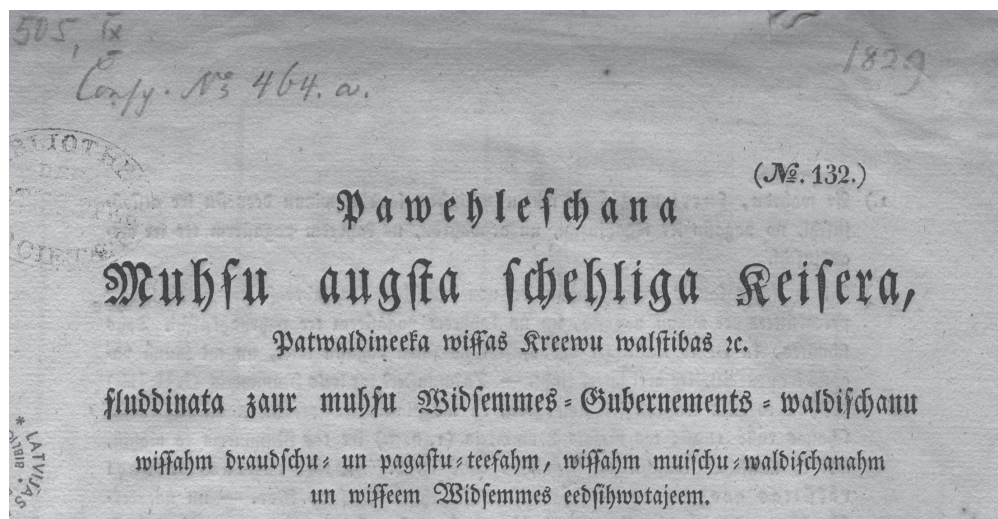 505, IX
Consp. No 464. a.
1829
BIBLIOTHE
(№. 132.)
Pawehleſchana
Muhſu augſta ſchehliga Keiſera,
Patwaldineeka wiſſas Kreewu walſtibas ꝛc.
ſluddinata zaur muhſu Widſemmes⸗Gubernements⸗waldiſchanu
wiſſahm draudſchu⸗ un pagaſtu⸗teeſahm, wiſſahm muiſchu⸗waldiſchanahm
un wiſſeem Widſemmes eedſihwotajeem.
* LATVIJAS
BIBL